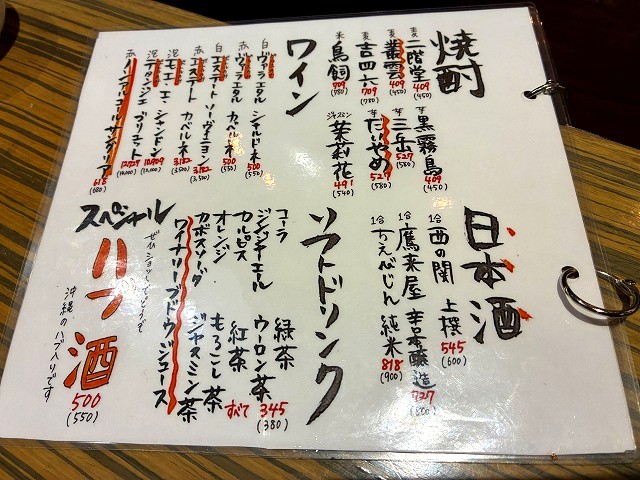 焼酎
麦 二階堂 409 (450)
麦 叢雲 409 (450)
麦 吉四六 709 (780)
米 鳥飼 709 (780)
芋 黒霧島 409 (450)
芋 三岳 527 (580)
芋 だいやめ 527 (580)
ジャスミン 茉莉花 491 (540)
ワイン
白 ヴァラエタル シャルドネ 500 (550)
赤 ヴァラエタル カベルネ 500 (550)
白 エステート ソーヴィニヨン 3182 (3,500)
赤 エステート カベルネ 3182 (3,500)
泡 モエ・エ・シャンドン 10,909 (12,000)
泡 テタンジェ ブリュット 12727 (14,000)
赤 ハンブルコール サングリア 618 (680)
日本酒
1合 西の関 上撰 545 (600)
1合 鷹来屋 辛口本醸造 727 (800)
1合 ちえびじん 純米 818 (900)
ソフトドリンク
コーラ
ジンジャーエール
カルピス
オレンジ
カボスソーダ
ワイナリーブドウジュース
緑茶
ウーロン茶
紅茶
もろこし茶
ジャスミン茶
すべて 345 (380)
スペシャル
ハブ酒 500 (550)
ぜひショットでどうぞ
沖縄のハブ入りです